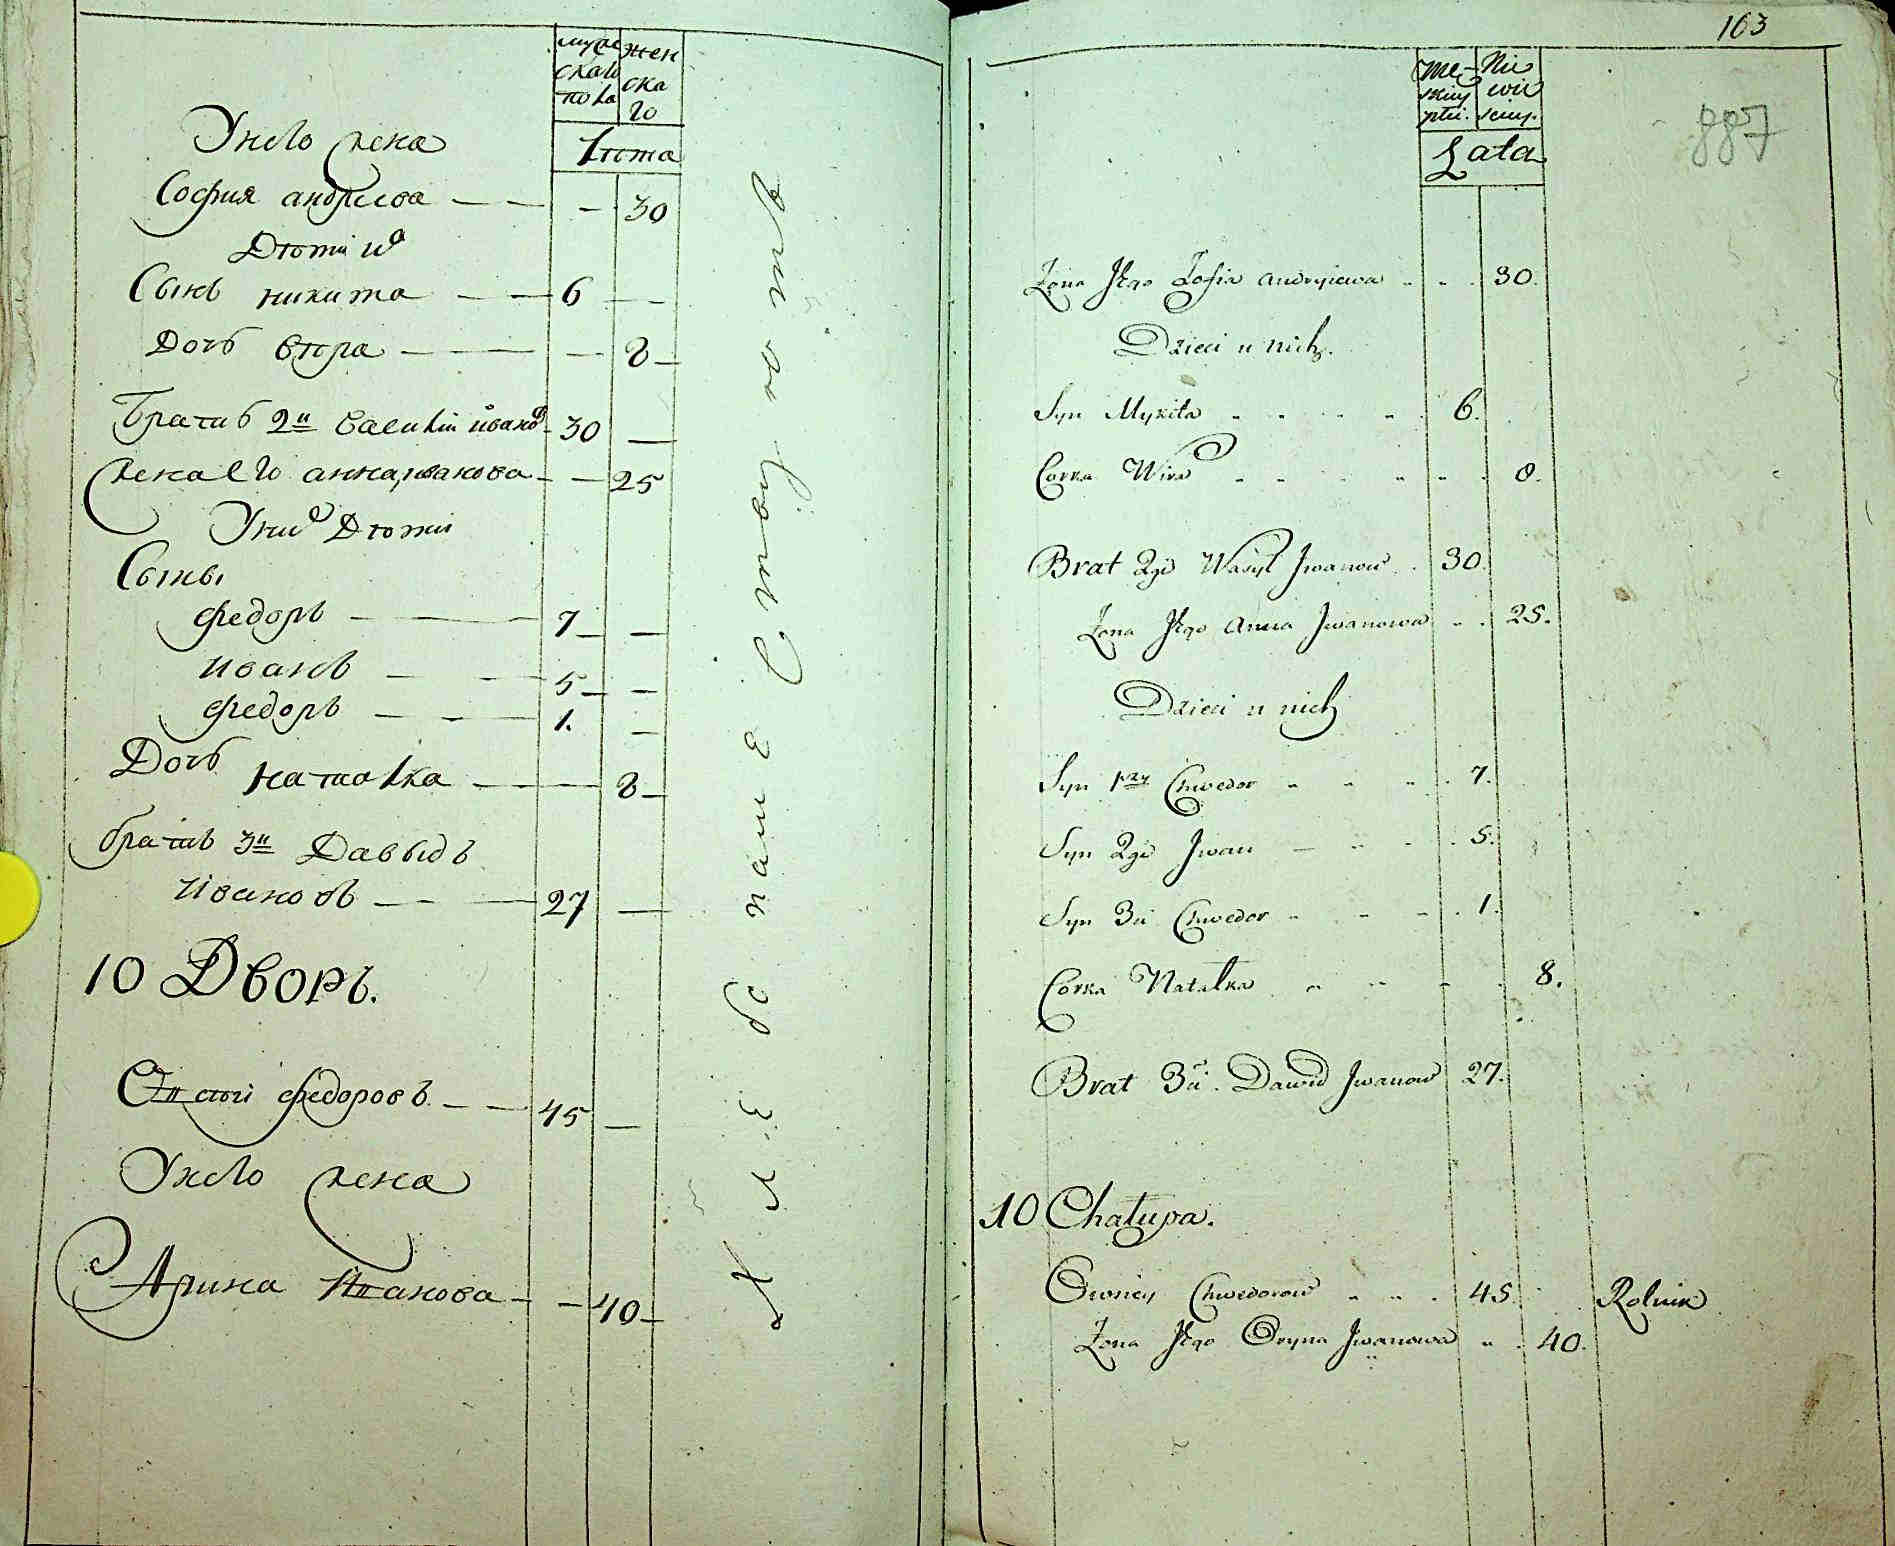 мужескаго пола
женскаго
Лѣта
У него жена
София андреева — — — 30
Дѣти их
Сынъ никита — — 6 — —
Дочь вѣра — — — 8 —
Братъ 2й василий иванов 30 —
жена его анна иванова — — 25
У них Дѣти
Сыны
Федоръ — — 7 — —
иванъ — — 5 — —
Федоръ — — 1. —
Дочь наталка — — 8 —
братъ 3й Давыдъ
ивановъ — — 27 —
10 Дворъ.
федоровъ. — — 45 —
У него жена
Арина иванова — — 40 —
Хлебопашествуютъ
163
887
Męskiey płci.
Niewieściey.
Lata
Żona Jego Zofia Andrejewa . . . 30.
Dzieci u nich.
Syn Mykita . . . . 6.
Corka Wira . . . . . 8.
Brat 2gi Wasyl Jwanow . 30.
Żona Jego Anna Jwanowa . . 25.
Dzieci u nich
Syn 1szy Chwedor . . . . 7.
Syn 2gi Jwan — . . . 5.
Syn 3ci Chwedor . . . . 1.
Corka Natalka . . . . 8.
Brat 3ci. Dawid Jwanow 27.
10 Chałupa.
Owsiey Chwedorow . . . 45. Rolnik
Żona Jego Oryna Jwanowa . . 40.